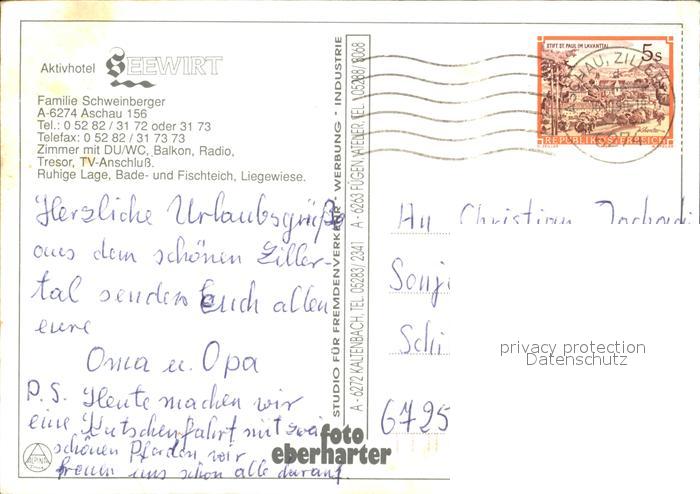 Aktivhotel SEEWIRT
Familie Schweinberger
A-6274 Aschau 156
Tel.: 0 52 82 / 31 72 oder 31 73
Telefax: 0 52 82 / 31 73 73
Zimmer mit DU/WC, Balkon, Radio,
Tresor, TV-Anschluß.
Ruhige Lage, Bade- und Fischteich, Liegewiese.
Herzliche Urlaubsgrüße
aus dem schönen Ziller-
tal senden Euch allen
eure
Oma u. Opa
P.S. Heute machen wir
eine Kutschenfahrt mit zwei
schönen Pferden wir
freuen uns schon alle darauf.
STUDIO FÜR FREMDENVERKEHR - WERBUNG - INDUSTRIE
A - 6272 KALTENBACH, TEL. 05283/2341 A - 6263 FÜGEN, ATELIER, TEL. 05288/3068
foto
eberharter
STIFT ST. PAUL IM LAVANTTAL
5 S
REPUBLIK ÖSTERREICH
An Christian
Sonj
Schi
6725
privacy protection
Datenschutz